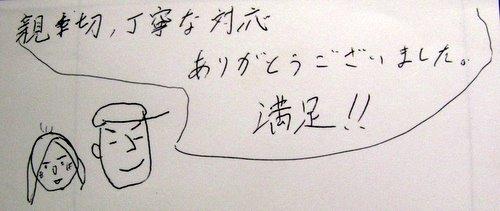 親切,丁寧な対応
ありがとうございました。
満足!!